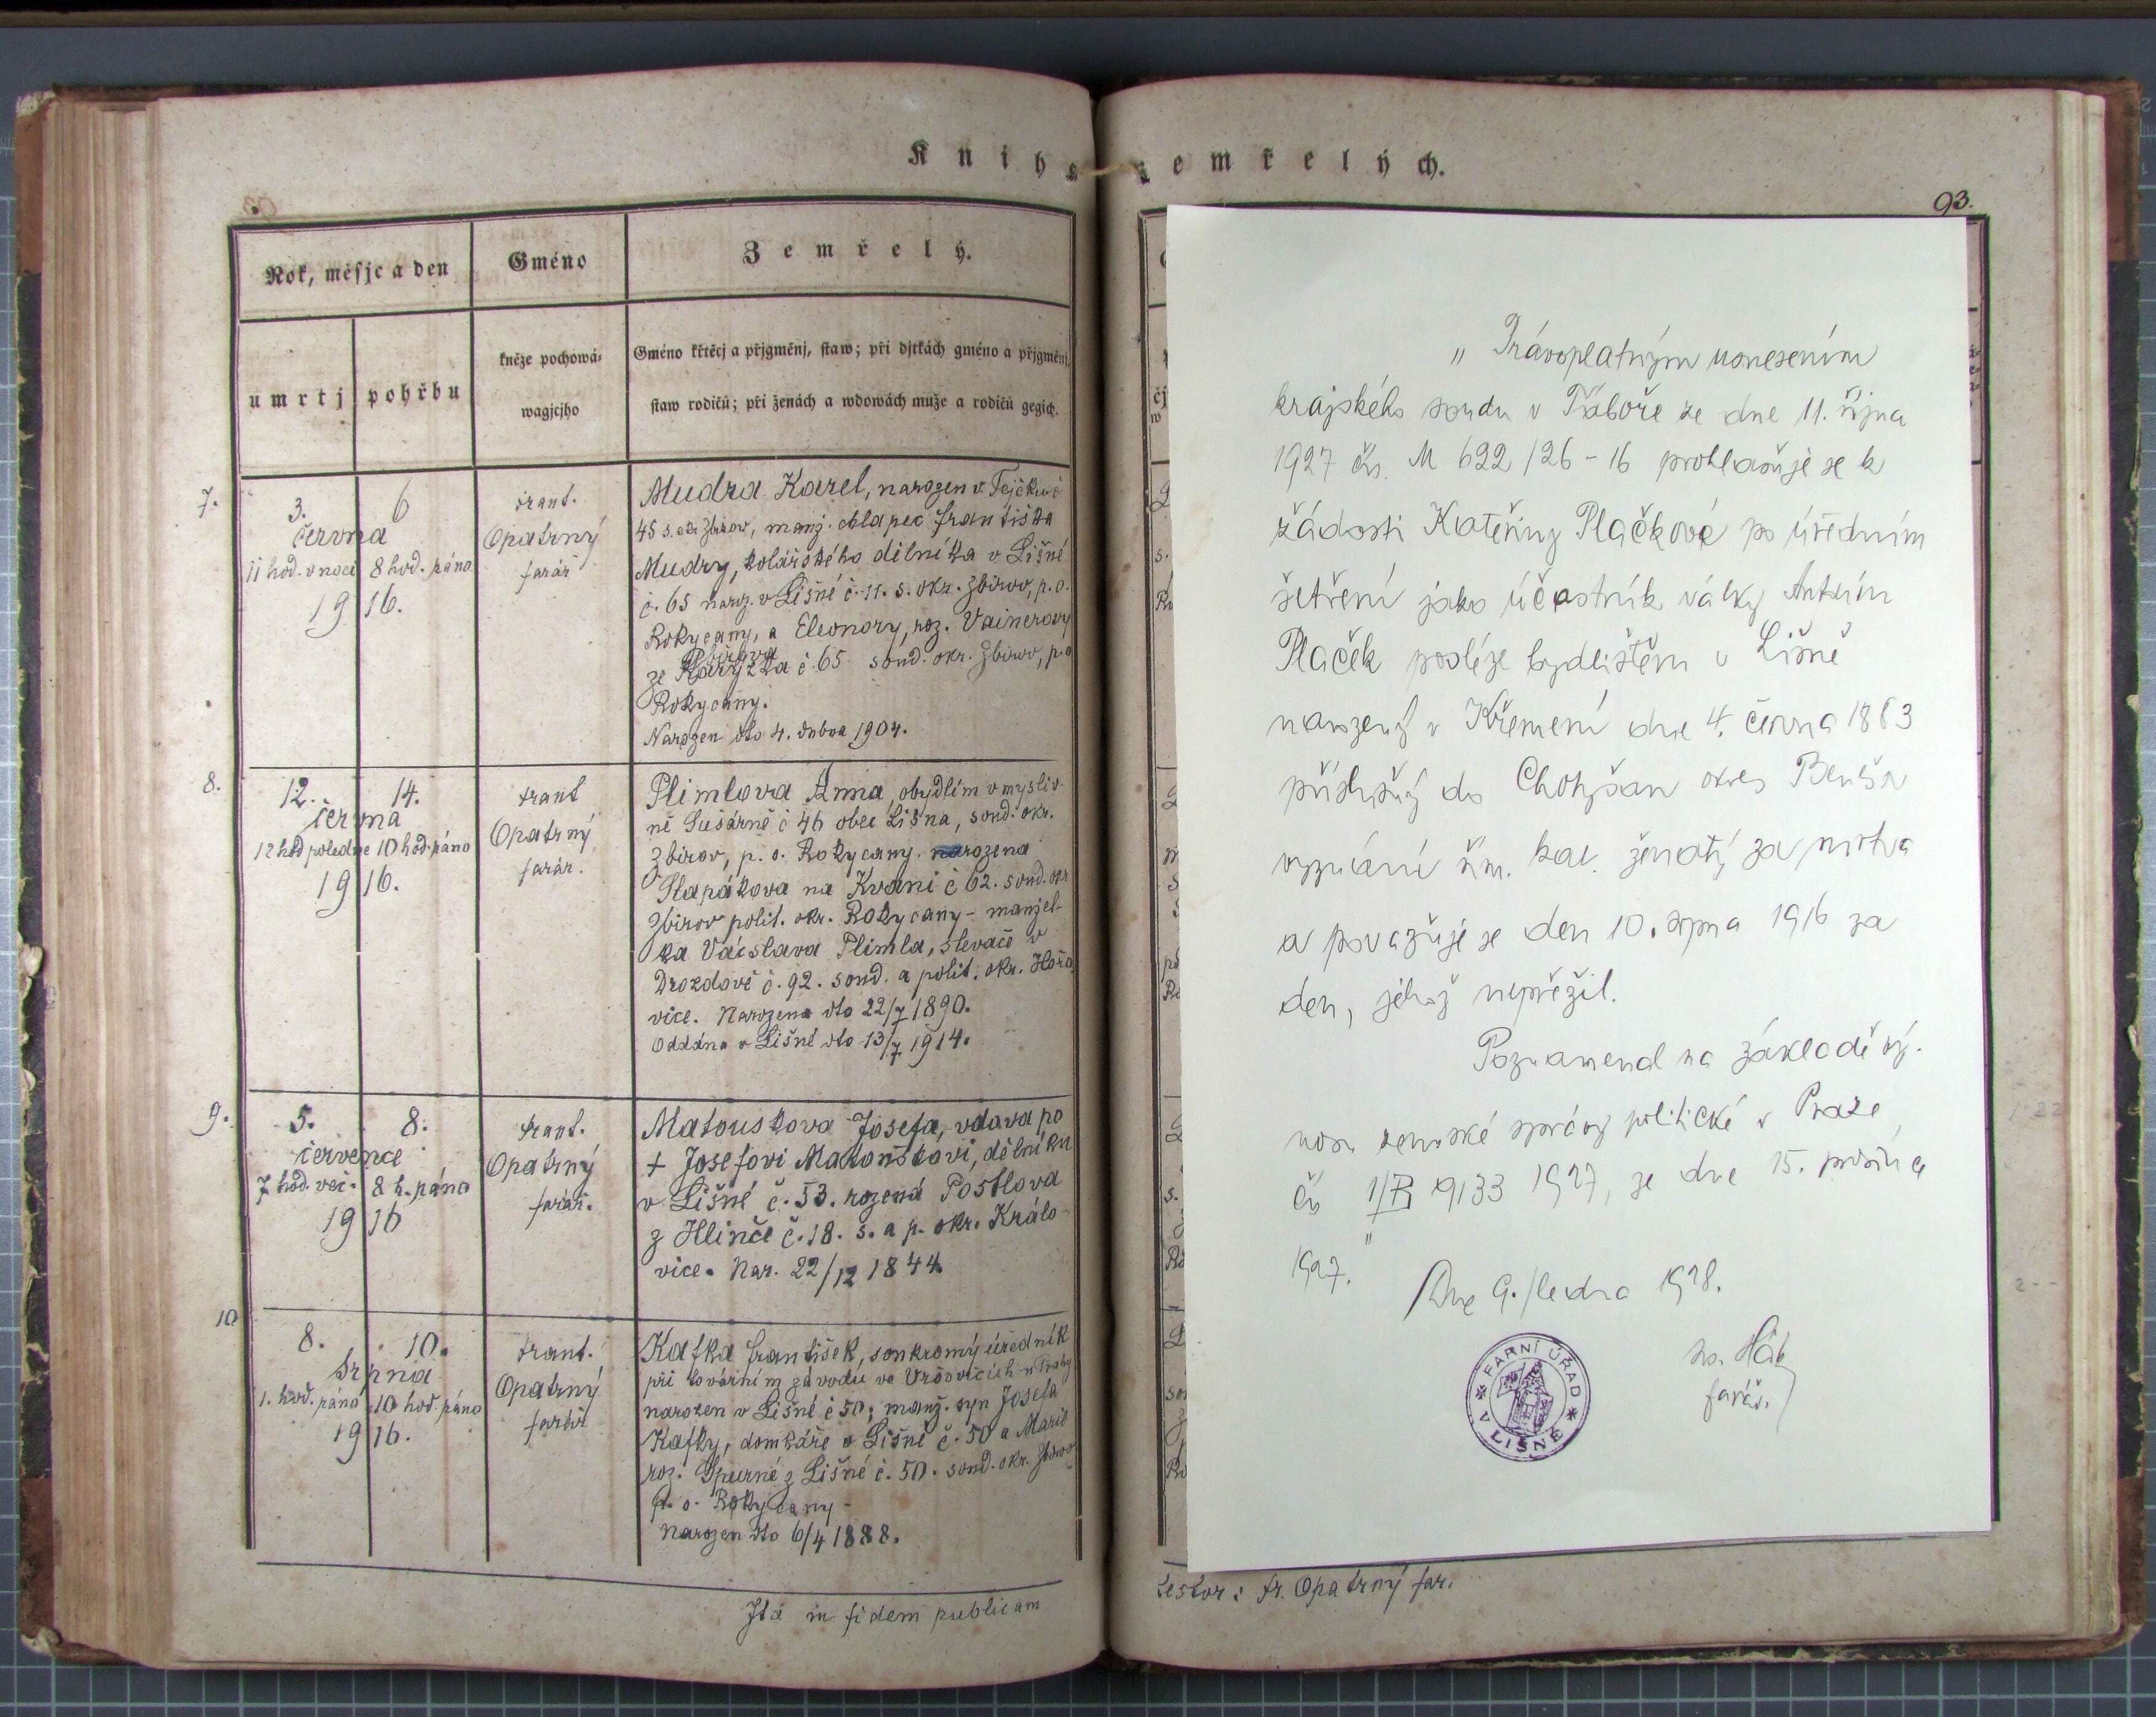 Kniha zemřelých.
93.
Rok, měsjc a den
Gméno
Zemřelý.
umrtj
pohřbu
kněze pochowá-
wagjcjho
Gméno křtěcj a přjgměnj, staw; při djtkách gméno a přjgměnj,
staw rodičů; při ženách a wdowách muže a rodičů gegich.
7.
3.
6
června
11 hod. v noci
8 hod. ráno
1916.
Frant.
Opatrný
farář
Mudra Karel, narozen v
45 s. okr. Zbirov, manž. chlapec Františka
Mudry, kolářského dělníka v Lišné
č. 65 naroz. v Lišné č. 11. s. okr. Zbirov, p. o.
Rokycany, a Eleonory, roz. Vainerovy
ze č. 65 soud. okr. Zbirov, p. o
Rokycany.
Narozen dto 4. dubna 1904.
8.
12.
14.
června
12 hod poledne
10 hod. ráno
1916.
Frant
Opatrný
farář.
Plimlova Anna, obydlím v mysliv-
ně Sušárně č 46 obec Lišna, soud. okr.
Zbirov, p. o. Rokycany. narozena
Slapákova na Kváni č 62. soud. okr
Zbirov polit. okr. Rokycany - manžel-
ka Václava Plimla, slevače v
Drozdově č. 92. soud. a polit. okr. Hořo
vice. Narozena dto 22/7 1890.
Oddána v Lišné dto 13/7 1914.
9.
5.
8.
července
7 hod. več.
8 h. ráno
1916
Frant.
Opatrný
farář.
Matouskova Josefa, vdova po
+ Josefovi Matouškovi, dělníku
v Lišné č. 53. rozená Postlova
z Hlinče č. 18. s. a p. okr. Králo-
vice. Nar. 22/12 1844
10
8.
10.
Srpna
1. hod. ráno
10 hod. ráno
1916.
Frant.
Opatrný
farář
Kafka František, soukromý úředník
při továrním závodu ve Vršovicích u Prahy
narozen v Lišné č 50; manž. syn Josefa
Kafky, domkáře v Lišné č. 50 a Marie
roz. Spurné z Lišné č. 50. soud. okr. Zbirov
p. o. Rokycany -
narozen dto 6/4 1888.
Ita in fidem publicam
testor: Fr. Opatrný far.
„Právoplatným usnesením
krajského soudu v Táboře ze dne 11. října
1927 čís. M 622/26-16 prohlašuje se k
žádosti Kateřiny Plačkové po úředním
šetření jako účastník války Antonín
Plaček posléze bydlištěm v Lišné
narozený v Křemení dne 4. června 1883
příslušný do Chotýšan okres Benešov
vyznání řím. kat. ženatý za mrtva
a považuje se den 10. srpna 1916 za
den, jehož nepřežil.
Poznamenal na základě vý-
nosu zemské správy politické v Praze
čís 9133 1927, ze dne 15. prosince
1927."
Dne 9. ledna 1928.
farář.
FARNÍ ÚŘAD
V LIŠNÉ